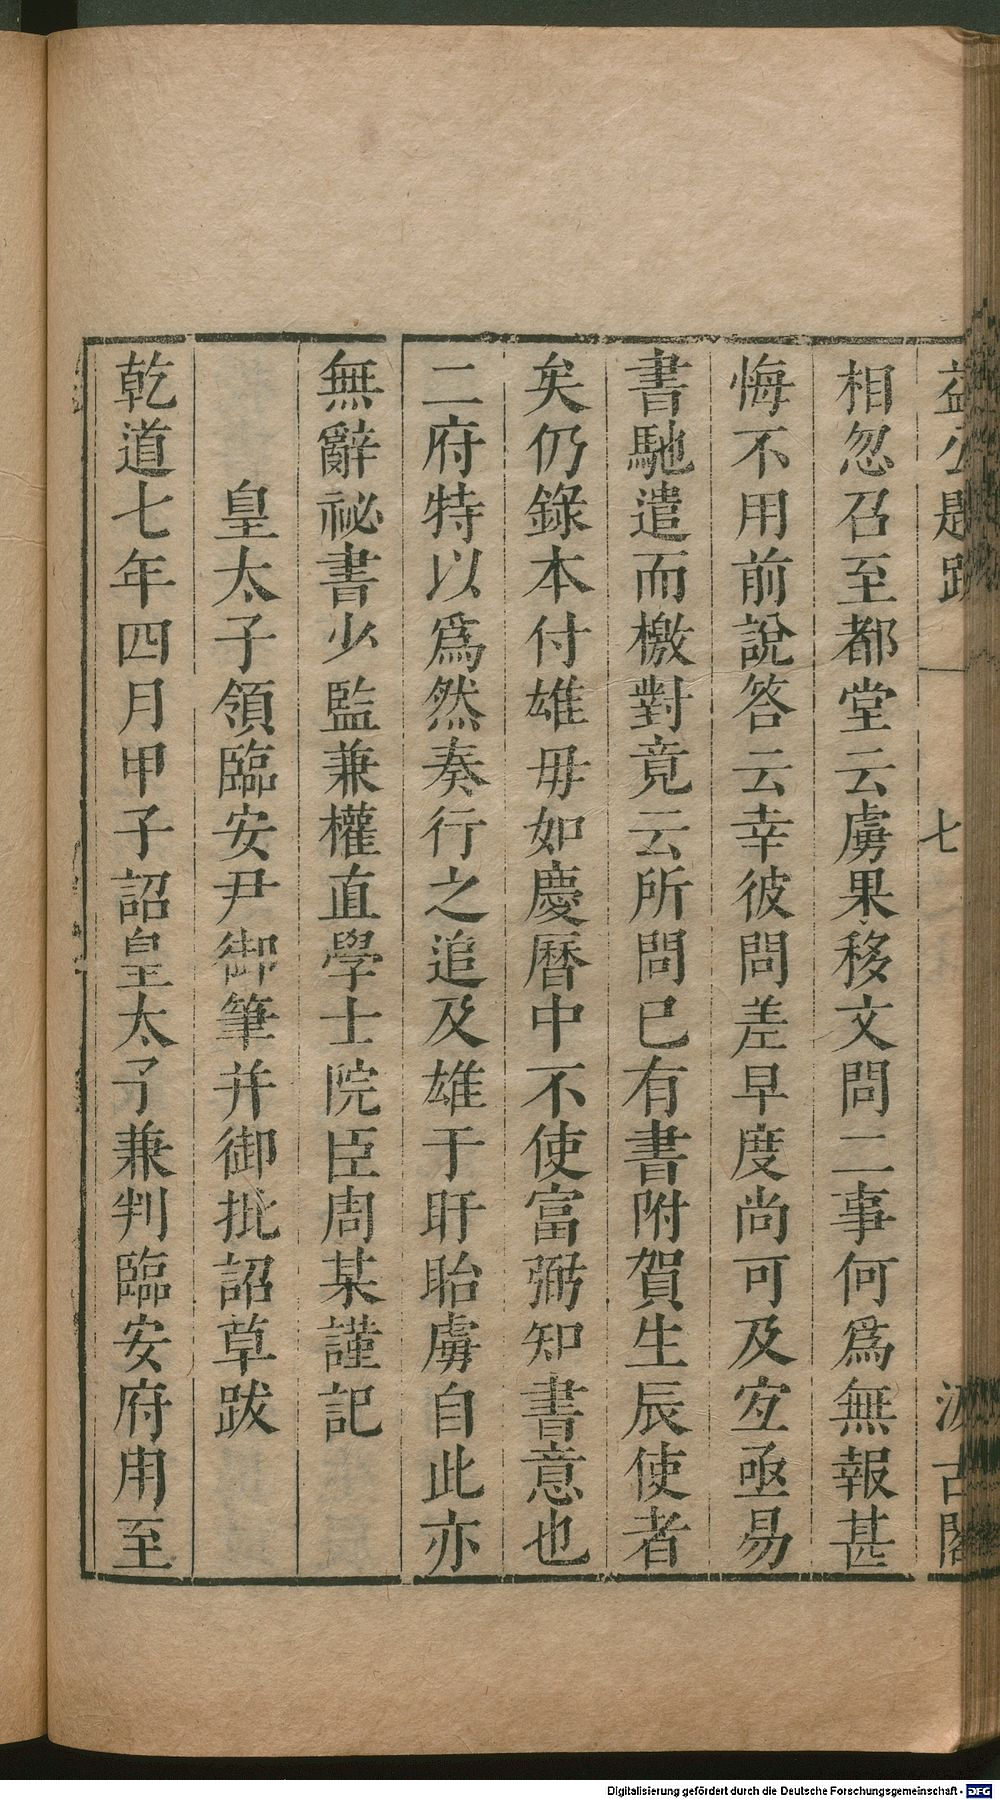 益公題跋 一 七 汲古閣
相忽召至都堂云虜果移文問二事何爲無報甚
悔不用前說答云幸彼問差早度尚可及宐亟易
書馳遣而檄對竟云所問已有書附賀生辰使者
矣仍錄本付雄毋如慶曆中不使富弼知書意也
二府特以爲然奏行之追及雄于盱眙虜自此亦
無辭祕書少監兼權直學士院臣周某謹記
皇太子領臨安尹御筆并御批詔草跋
乾道七年四月甲子詔皇太子兼判臨安府用至
Digitalisierung gefördert durch die Deutsche Forschungsgemeinschaft - DFG